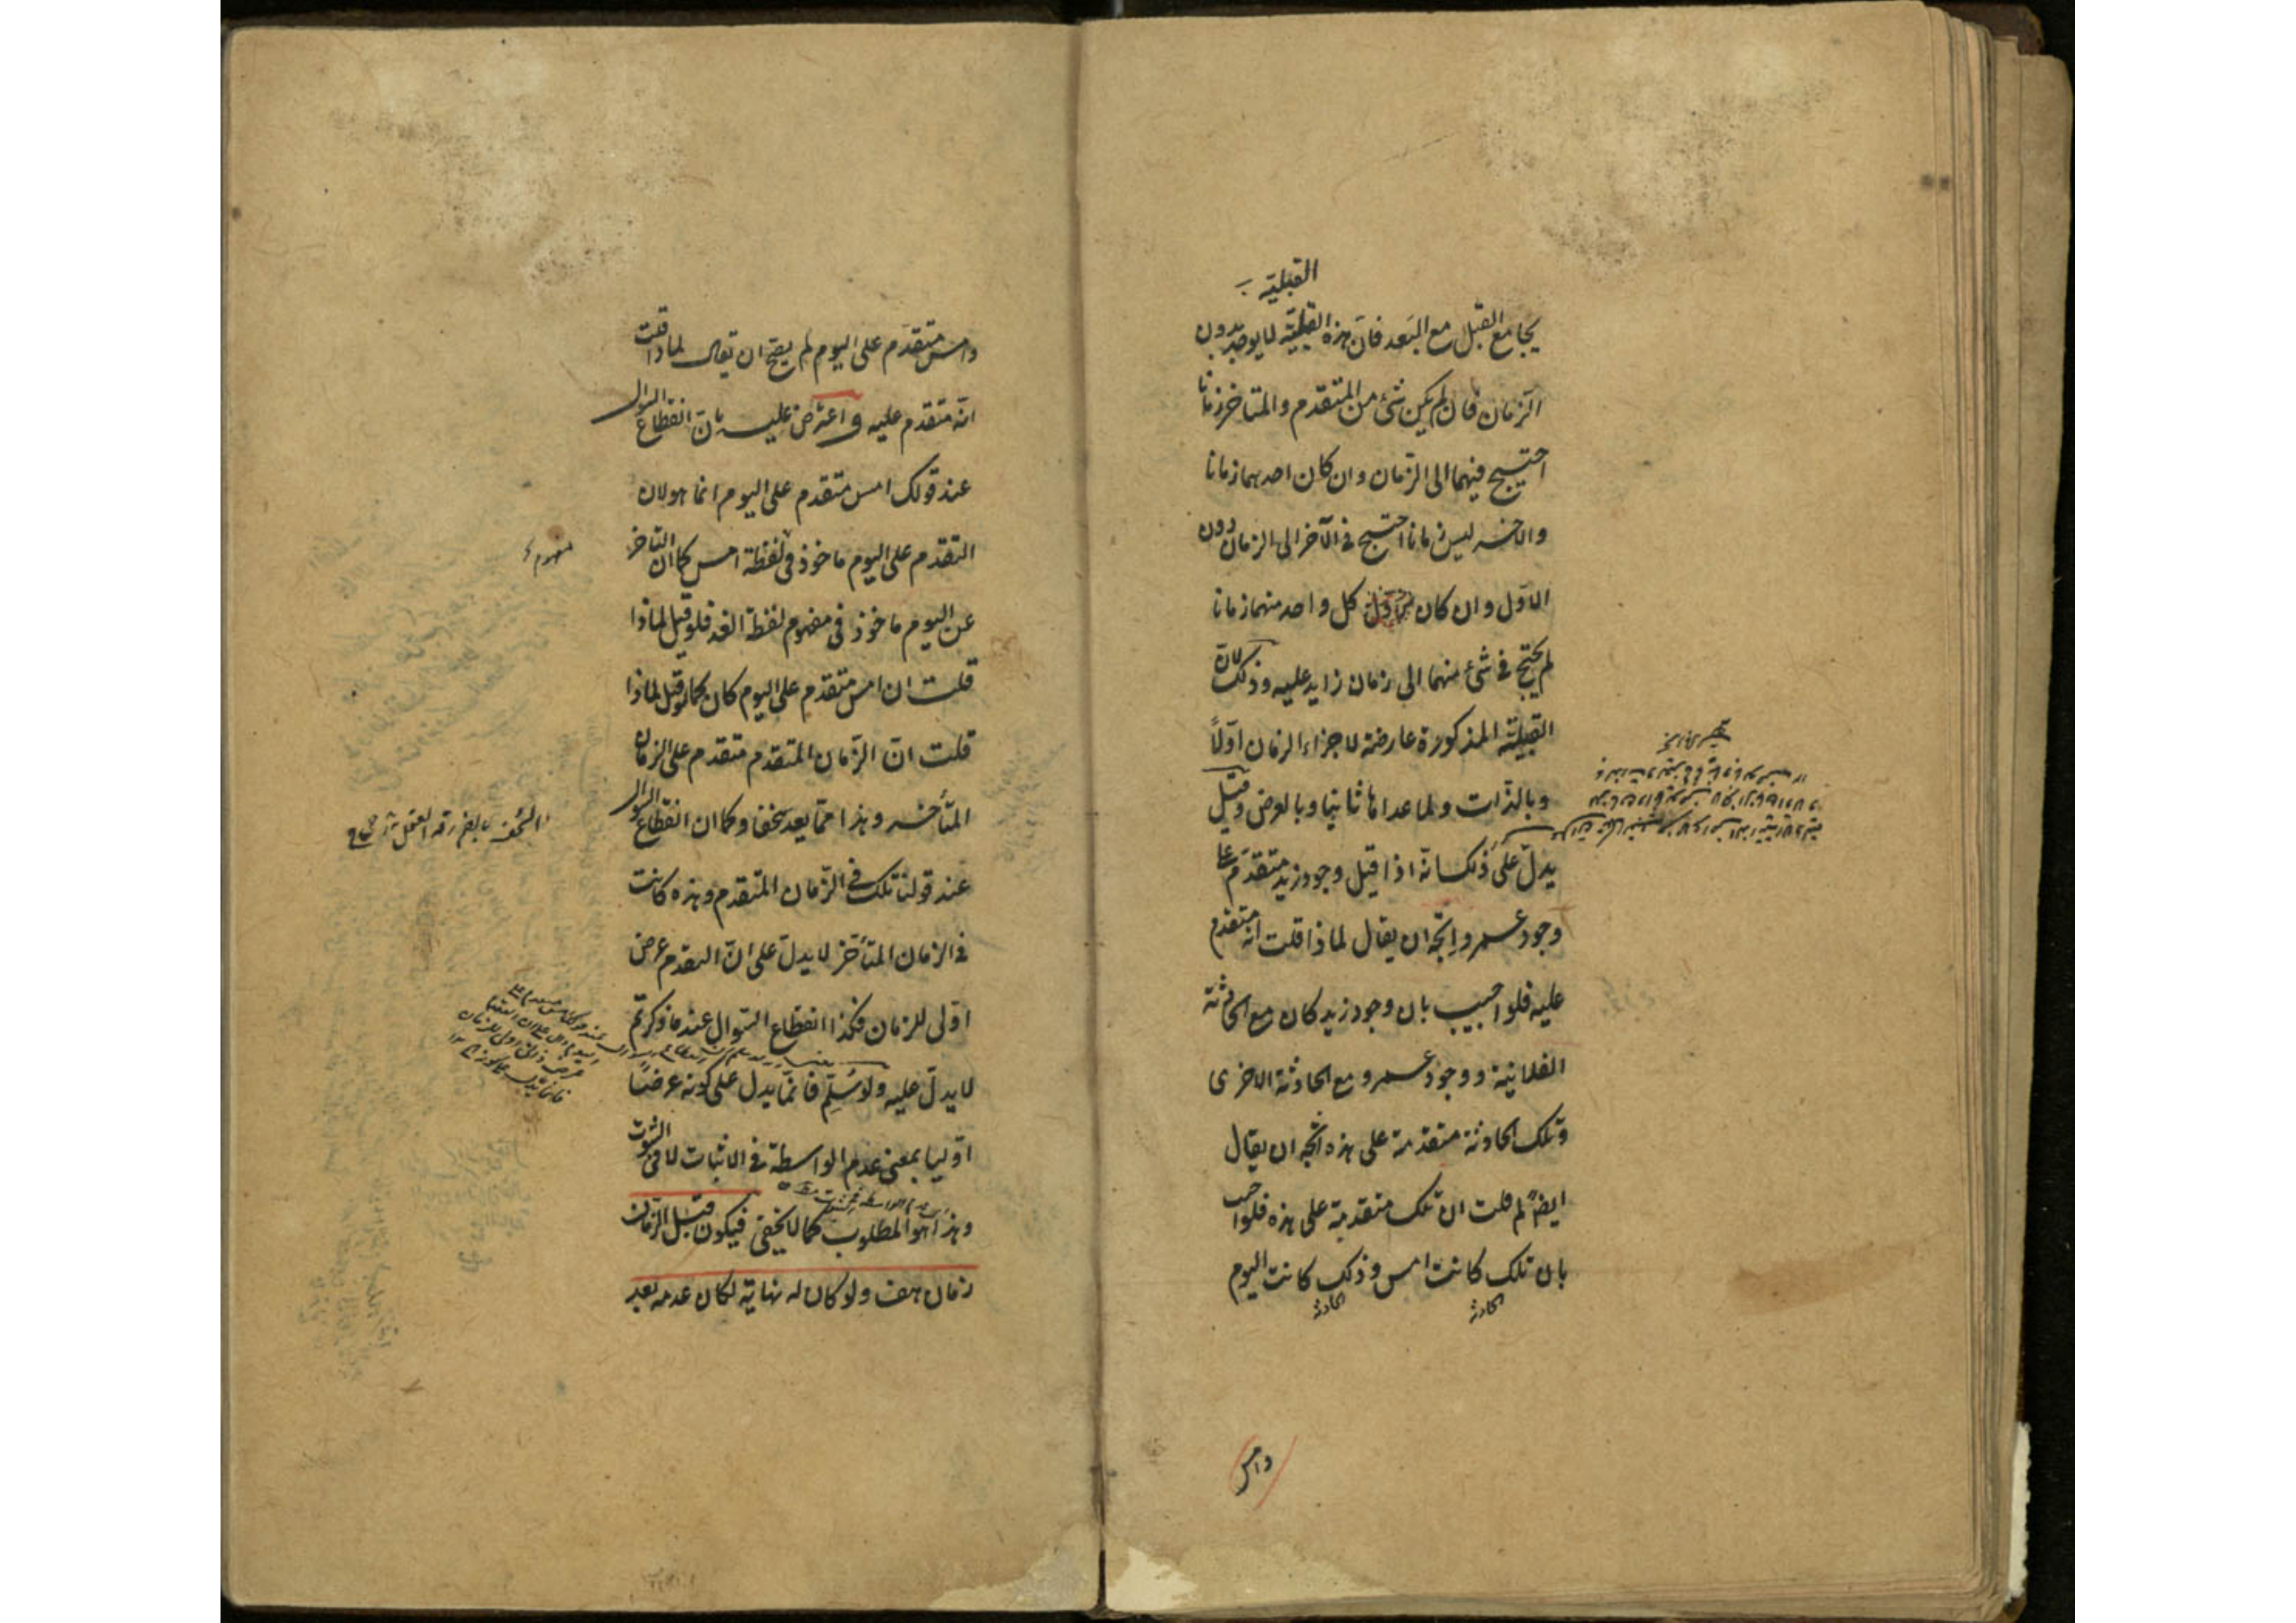 القبلية
يجامع القبل مع البعد فان هذه القبلية لا يوجد بدون
الزمان فان لم يكن شئ من المتقدم والمتاخر زمانا
احتيج فيهما الى الزمان وان كان احدهما زمانا
والاخر ليس زمانا احتيج في الآخر الى الزمان دون
الاول وان كان كل واحد منهما زمانا
لم يحتج في شئ منهما الى زمان زايد عليه وذلك لان
القبلية المذكورة عارضة لاجزاء الزمان اولاً
وبالذات ولما عداها ثانيا وبالعرض وقيل
يدل على ذلك انه اذا قيل وجود زيد متقدم على
وجود عمرو اتجه ان يقال لماذا قلت انه متقدم
عليه فلو اجيب بان وجود زيد كان مع الحادثة
الفلانية ووجود عمرو مع الحادثة الاخرى
وتلك الحادثة متقدمة على هذه اتجه ان يقال
ايضاً لم قلت ان تلك متقدمة على هذه فلو اجيب
بان تلك كانت امس وذلك كانت اليوم
الحادثة
الحادثة
وامس
وامس متقدم على اليوم لم يصح ان يقال لماذا قلت
انه متقدم عليه واعترض عليه بان انقطاع السوال
عند قولك امس متقدم على اليوم انما هو لان
التقدم على اليوم ماخوذ في لفظة امس كما ان التاخر
مفهوم
عن اليوم ماخوذ في مفهوم لفظة الغد فلو قيل لماذا
قلت ان امس متقدم على اليوم كان كما لو قيل لماذا
قلت ان الزمان المتقدم متقدم على الزمان
المتأخر وهذا مما يعد سخفا وكما ان انقطاع السوال
عند قولنا تلك في الزمان المتقدم وهذه كانت
في الزمان المتأخر لا يدل على ان التقدم عرض
اولى للزمان فكذا انقطاع السوال عند ما ذكرتم
لا يدل عليه ولو سُلّم فانما يدل على كونه عرضاً
اوليا بمعنى عدم الواسطة في الاثبات لا في الثبوت
وهذا هو المطلوب كما لا يخفى فيكون قبل الزمان
زمان هف ولو كان له نهاية لكان عدمه بعد